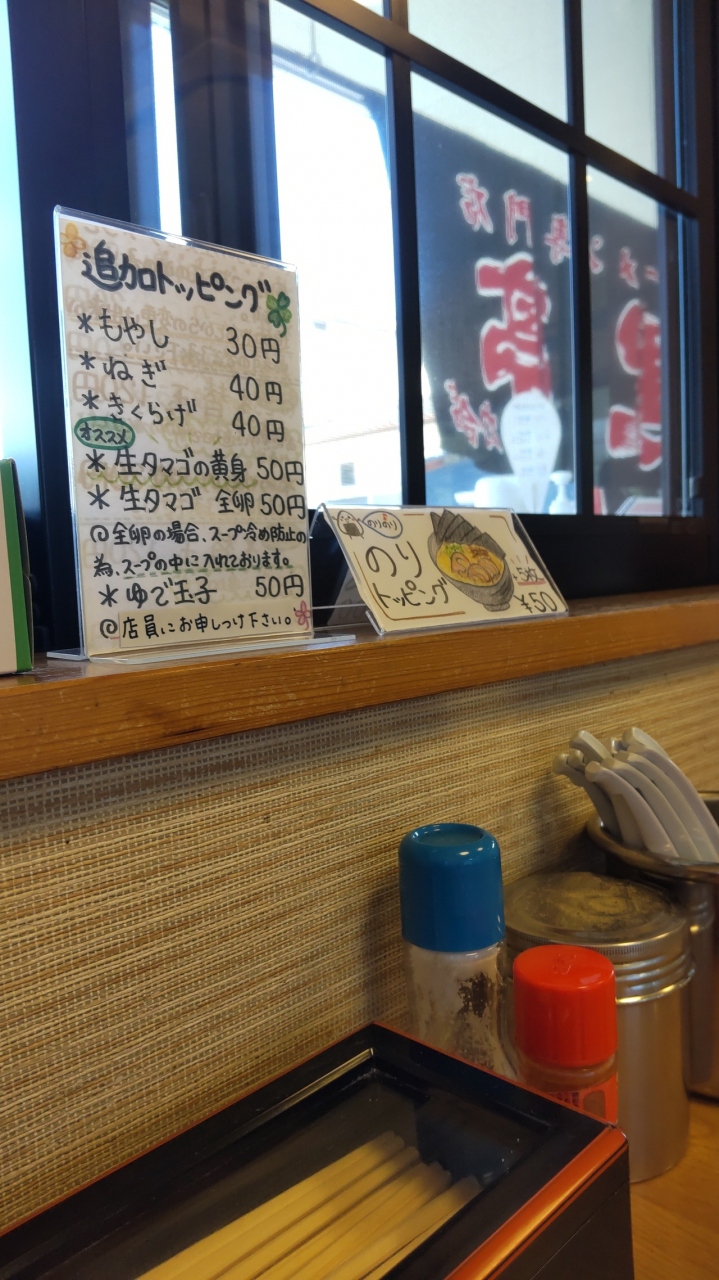 追加トッピング
*もやし 30円
*ねぎ 40円
*きくらげ 40円
オススメ
*生タマゴの黄身 50円
*生タマゴ 全卵 50円
◎全卵の場合、スープ冷め防止の
為、スープの中に入れております。
*ゆで玉子 50円
◎店員にお申しつけ下さい。
のりのり
のり
トッピング
5枚
¥50
専門店